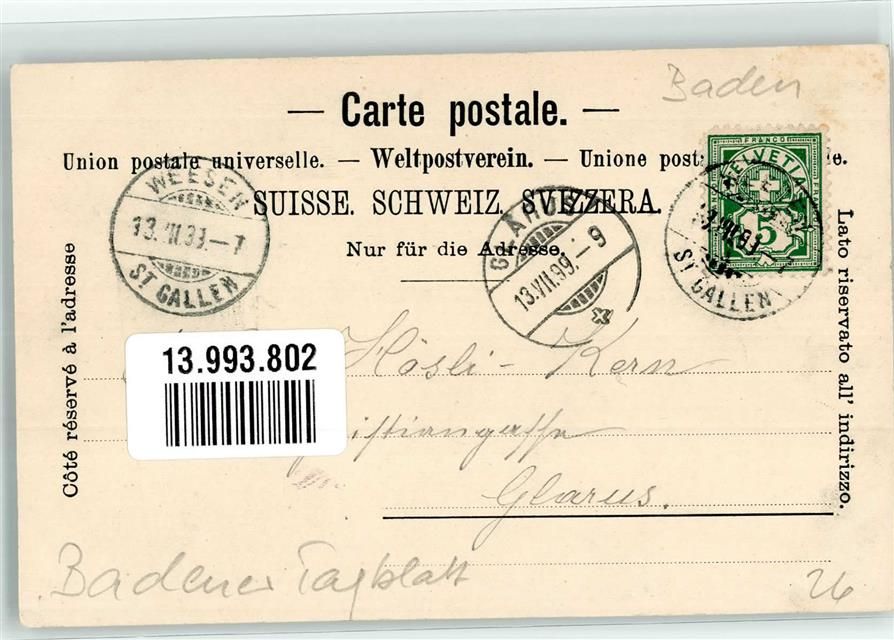 Baden
— Carte postale. —
Union postale universelle. — Weltpostverein. — Unione post e.
SUISSE. SCHWEIZ. SVIZZERA.
Nur für die Adresse.
WEESEN
13.VII.99.-7
ST GALLEN
GLARUS
13.VII.99.-9
FRANCO
HELVETIA
5
ST GALLEN
Côté réservé à l'adresse
Lato riservato all' indirizzo.
13.993.802
Hösli - Kern
Glarus.
Badener Tagblatt
26